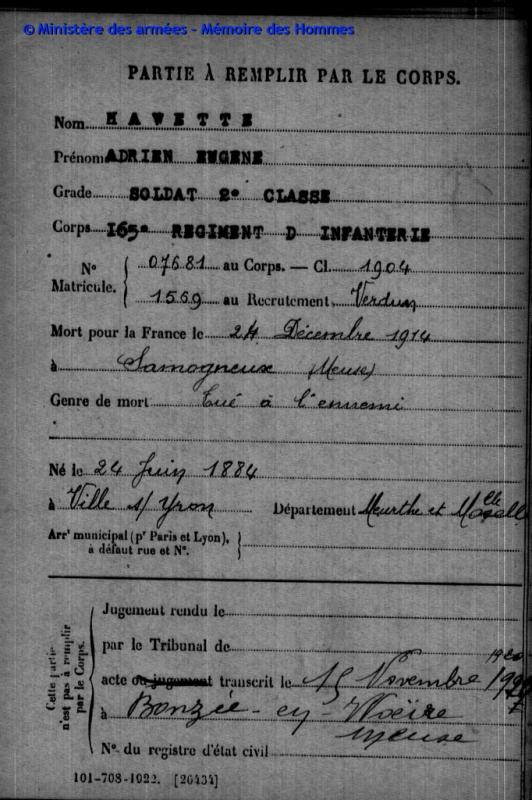 © Ministère des armées - Mémoire des Hommes
PARTIE À REMPLIR PAR LE CORPS.
Nom HAWETTE
Prénom ADRIEN EUGENE
Grade SOLDAT 2e CLASSE
Corps 165e REGIMENT D INFANTERIE
No Matricule. { 07681 au Corps. — Cl. 1904
1559 au Recrutement Verdun
Mort pour la France le 24 Décembre 1914
à Samogneux (Meuse)
Genre de mort Tué à l'ennemi
Né le 24 Juin 1884
à Ville s/ Yron Département Meurthe et Moselle
Arrt municipal (pr Paris et Lyon),
à défaut rue et No.
Cette partie n'est pas à remplir par le Corps.
Jugement rendu le
par le Tribunal de
acte ou jugement transcrit le 15 Novembre 1920
à Bonzée-en-Woëvre
Meuse
No du registre d'état civil
101-708-1922. [26434]